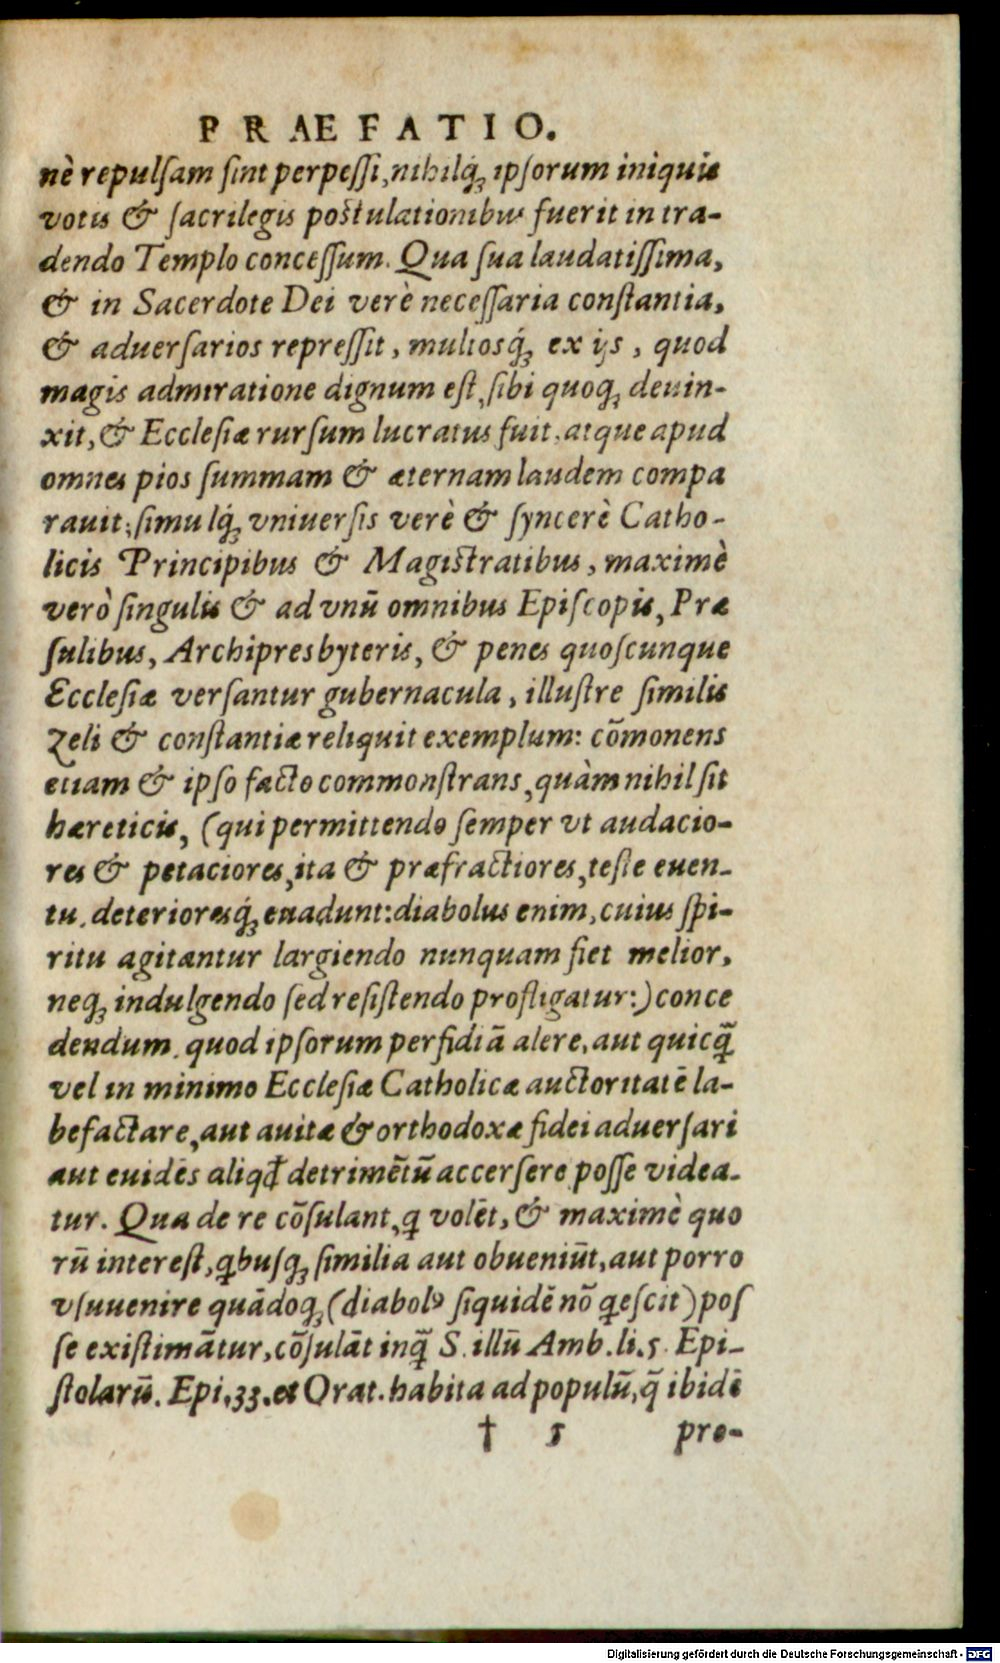 PRAEFATIO.
nè repulſam ſint perpeſſi, nihilq́; ipſorum iniquis
votis & ſacrilegis poſtulationibus fuerit in tra-
dendo Templo conceſſum. Qua ſua laudatiſſima,
& in Sacerdote Dei verè neceſſaria conſtantia,
& aduerſarios repreſſit, multosq́; ex ijs, quod
magis admiratione dignum eſt, ſibi quoq; deuin-
xit, & Eccleſiæ rurſum lucratus fuit, atque apud
omnes pios ſummam & æternam laudem compa
rauit; ſimulq́; vniuerſis verè & ſyncerè Catho-
licis Principibus & Magiſtratibus, maximè
verò ſingulis & ad vnū omnibus Epiſcopis, Præ
ſulibus, Archipresbyteris, & penes quoſcunque
Eccleſiæ verſantur gubernacula, illuſtre ſimilis
zeli & conſtantiæ reliquit exemplum: cōmonens
etiam & ipſo facto commonſtrans, quàm nihil ſit
hæreticis, (qui permittendo ſemper vt audacio-
res & petaciores, ita & præfractiores, teſte euen-
tu, deterioresq́; euadunt: diabolus enim, cuius ſpi-
ritu agitantur largiendo nunquam fiet melior,
neq; indulgendo ſed reſiſtendo profligatur:) conce
dendum, quod ipſorum perfidiā alere, aut quicq̃
vel in minimo Eccleſiæ Catholicæ auctoritatē la-
befactare, aut auitæ & orthodoxæ fidei aduerſari
aut euidēs aliqđ detrimētū accerſere poſſe videa-
tur. Qua de re cōſulant, q volēt, & maximè quo
rū intereſt, qbuſq; ſimilia aut obueniūt, aut porro
vſuuenire quādoq; (diabolꝰ ſiquidē nō qeſcit) poſ
ſe exiſtimātur, cōſulāt inq̃ S. illū Amb. li. 5. Epi-
ſtolarū. Epi. 33. et Orat. habita ad populū, q̃ ibidē
† 5 pre-
Digitalisierung gefördert durch die Deutsche Forschungsgemeinschaft - DFG